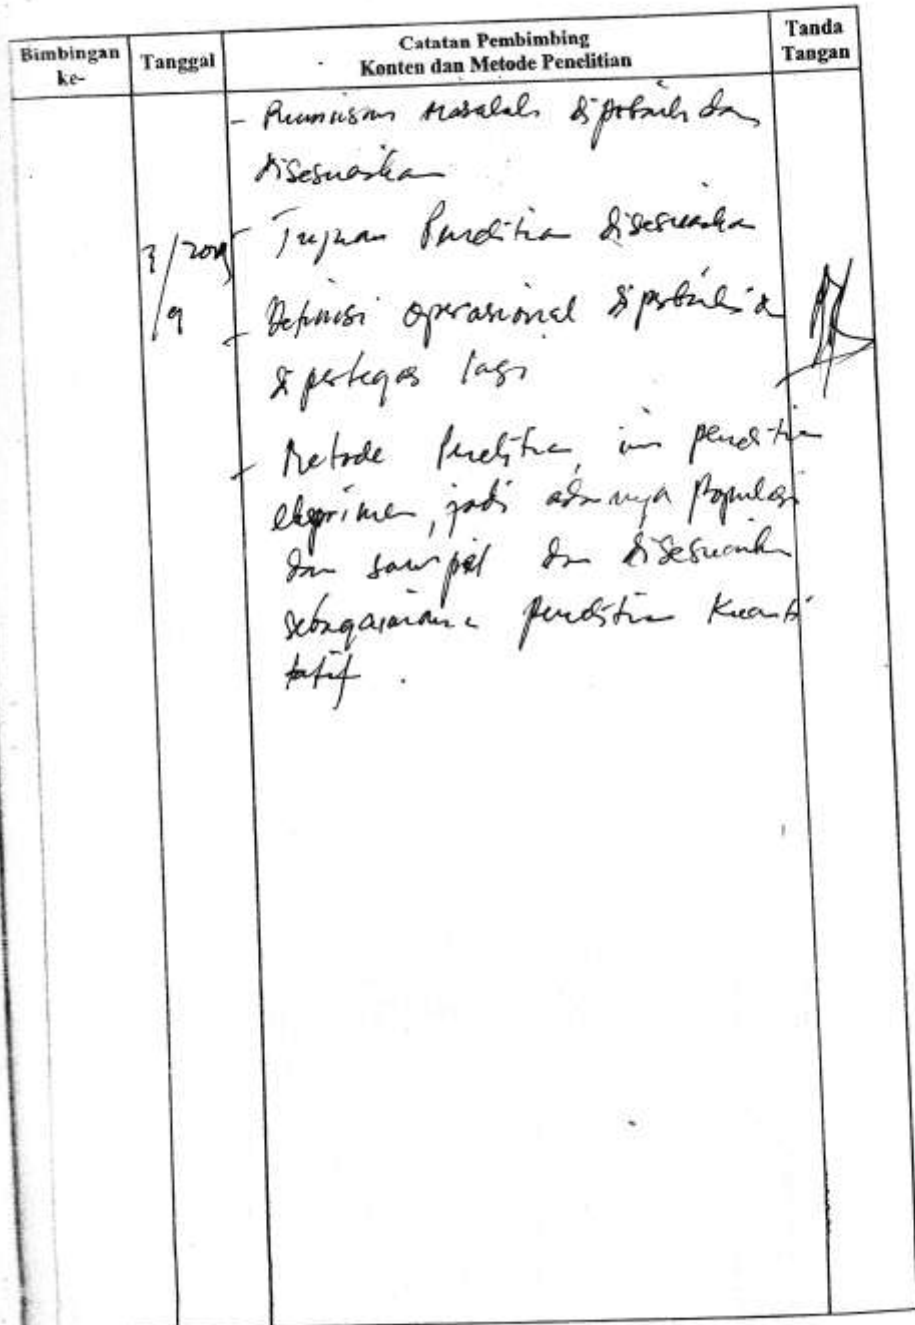 Bimbingan ke-
Tanggal
Catatan Pembimbing
Konten dan Metode Penelitian
Tanda Tangan
- Rumusan Masalah diperbaiki dan
disesuaikan
- Tujuan Penelitian disesuaikan
- Definisi operasional diperbaiki &
dipertegas lagi
- Metode Penelitian, ini penelitian
eksprimen, jadi adanya populasi
dan sampel dan disesuaikan
sebagaimana penelitian Kuanti
tatif.